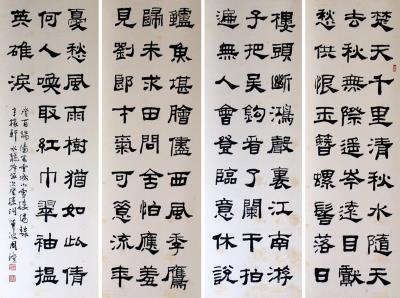 楚天千里清秋水隨天
去秋無際遥岑遠目獻
愁供恨玉簪螺髻落日
樓頭斷鴻聲裏江南游
子把吴鈎看了闌干拍
遍無人會登臨意休說
鱸魚堪膾儘西風季鷹
歸未求田問舍怕應羞
見劉郎才氣可惜流年
憂愁風雨樹猶如此倩
何人喚取紅巾翠袖揾
英雄淚